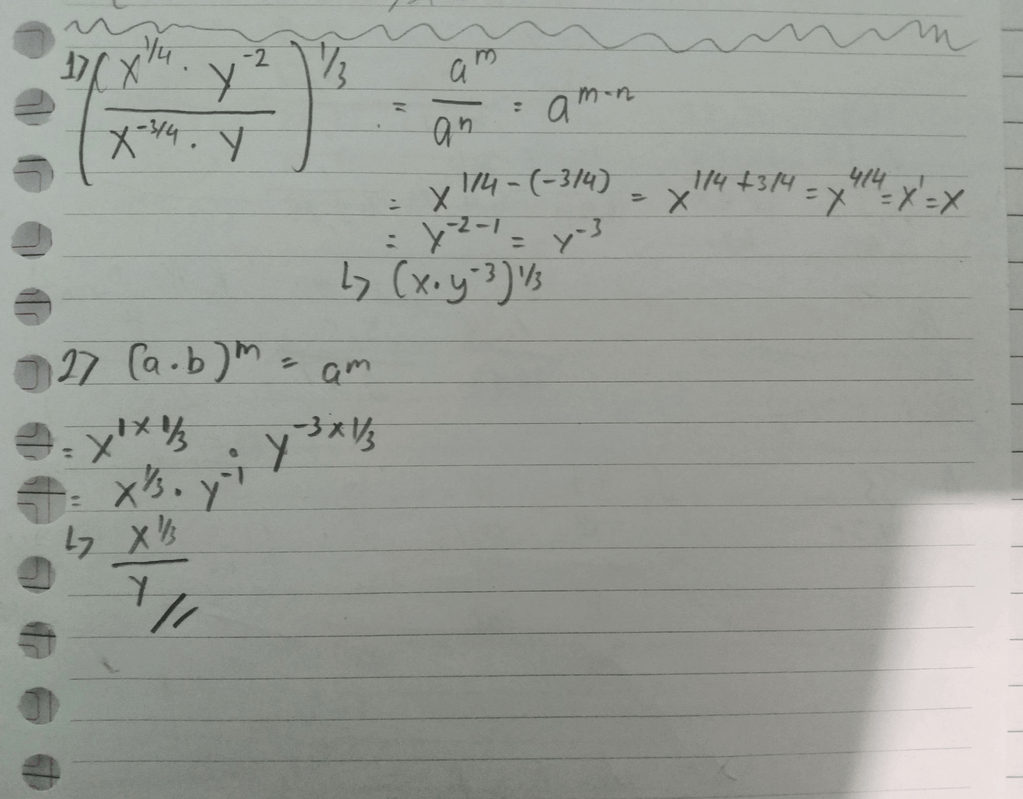 1) (x^{1/4} · y^{-2} / x^{-3/4} · y)^{1/3} = a^m / a^n = a^{m-n}
= x^{1/4-(-3/4)} = x^{1/4+3/4} = x^{4/4} = x^1 = x
= y^{-2-1} = y^{-3}
↳ (x·y^{-3})^{1/3}
2) (a.b)^m = a^m
= x^{1×1/3} · y^{-3×1/3}
= x^{1/3} · y^{-1}
↳ x^{1/3} / y //